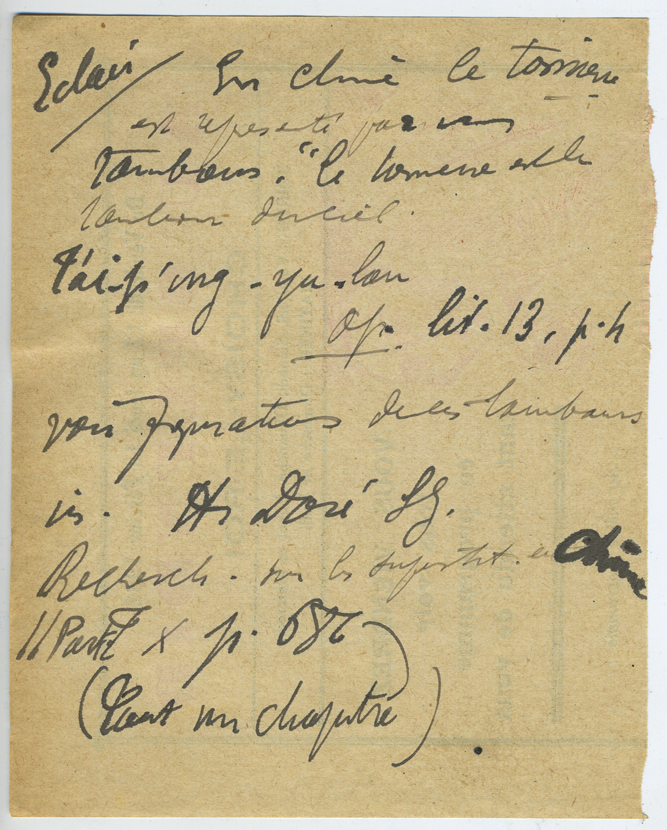 Eclair / En Chine le tonnerre
est représenté par un
tambour. "le tonnerre est le
tambour du ciel.
T'ai-p'ing-yu-lan
op. lit. 13, p. 4
voir figurations de ces tambours
in. H. Doré SJ.
Recherch. sur les superstit. en Chine
II Part X p. 686
(Tout un chapitre)